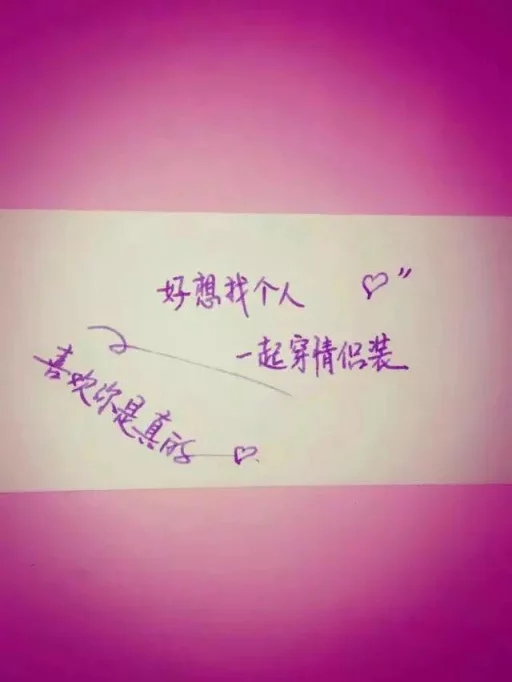 好想找个人
一起穿情侣装
喜欢你是真的